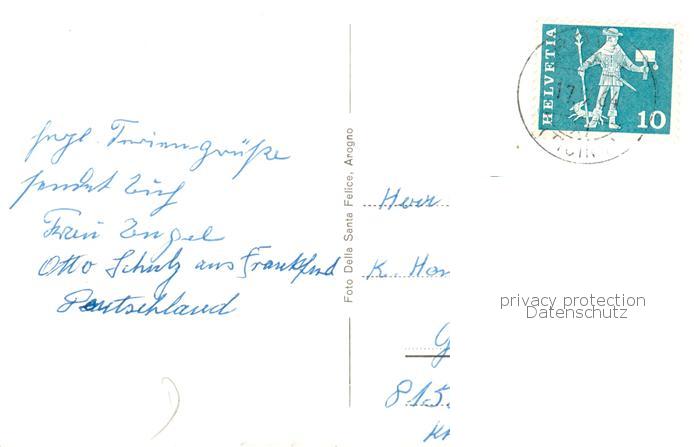 herzl. Feriengrüße
sendet Euch
Frau Engel
Otto Schulz aus Frankfurd
Deutschland
Foto Della Santa Felice, Arogno
Herr
K. Han
G
815
HELVETIA
10
privacy protection
Datenschutz